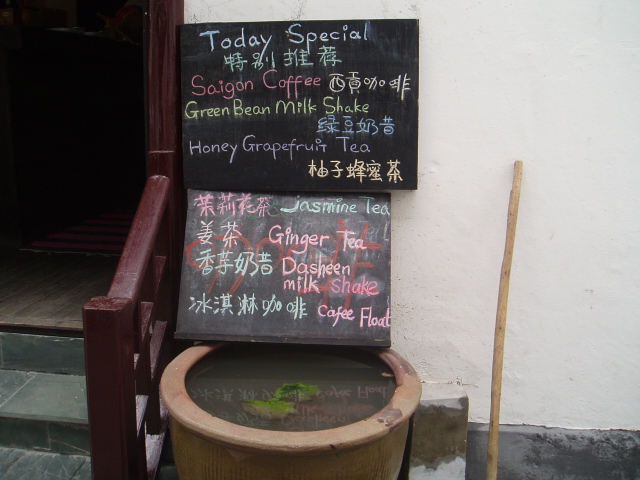 Today Special
特别推荐
Saigon Coffee 西貢咖啡
Green Bean Milk Shake
绿豆奶昔
Honey Grapefruit Tea
柚子蜂蜜茶
茉莉花茶 Jasmine Tea
姜茶 Ginger Tea
香芋奶昔 Dasheen
milk shake
冰淇淋咖啡 Cafee Float